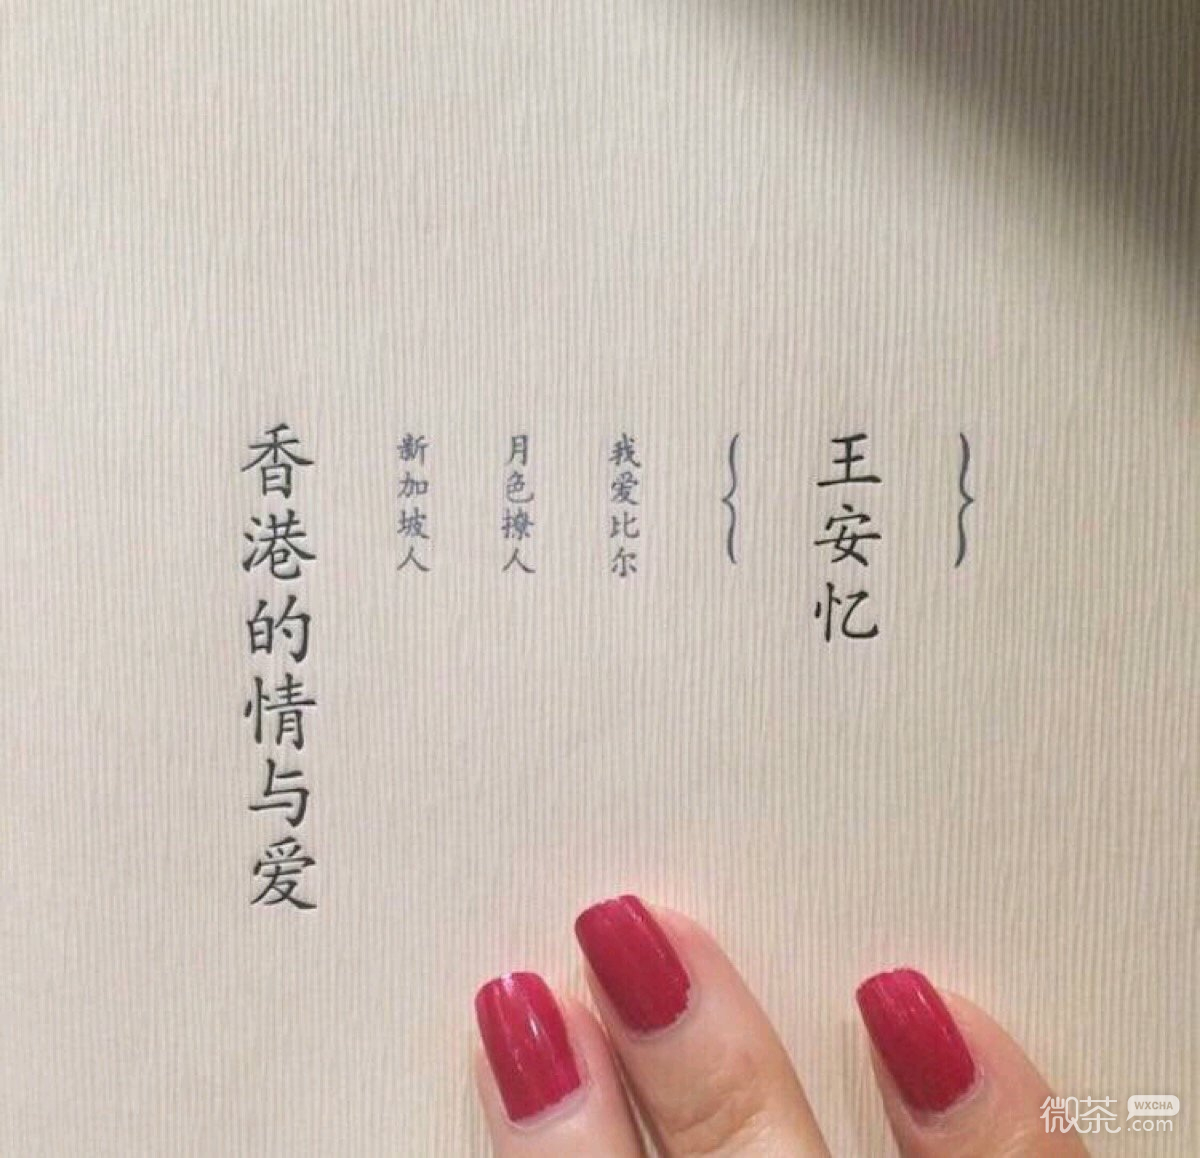 {王安忆}
我爱比尔
月色撩人
新加坡人
香港的情与爱
微茶
WXCHA
.com